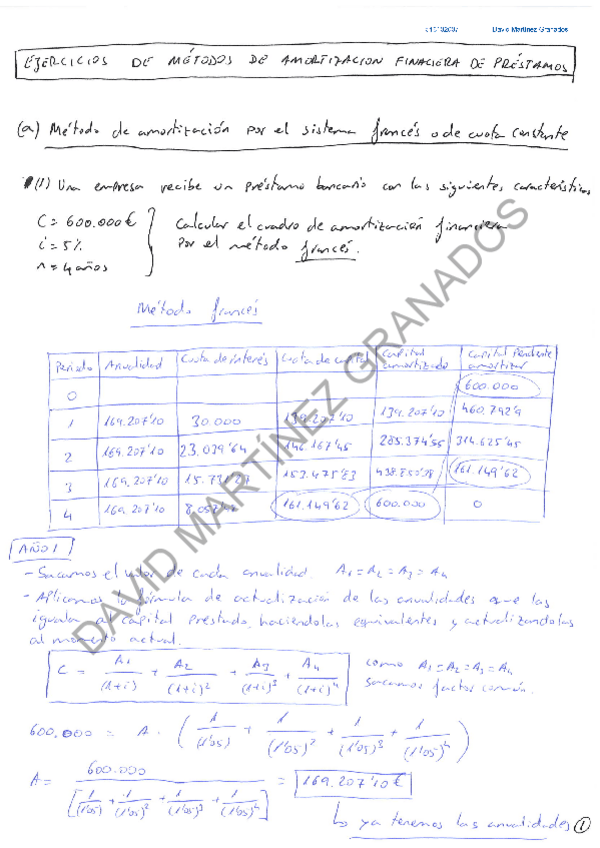 David Martínez Granados
EJERCICIOS DE MÉTODOS DE AMORTIZACION FINACIERA DE PRÉSTAMOS
(a) Método de amortización por el sistema francés o de cuota constante
(1) Una empresa recibe un préstamo bancario con las siguientes características
C = 600.000 € Calcular el cuadro de amortización financiera
i = 5% por el método francés.
n = 4 años
Método francés
Periodo Anualidad Cuota de interés Cuota de capital Capital amortizado Capital Pendiente amortizar
0 600.000
1 169.207'10 30.000 139.207'10 139.207'10 460.792'9
2 169.207'10 23.039'64 146.167'45 285.374'55 314.625'45
3 169.207'10 153.475'83 161.149'62
4 169.207'10 161.149'62 600.000 0
AÑO 1
- Sacamos el valor de cada anualidad. A1 = A2 = A3 = A4
- Aplicamos la fórmula de actualización de las anualidades que las
iguala al capital prestado, haciéndolas equivalentes y actualizandolas
al momento actual.
C = A1/(1+i) + A2/(1+i)² + A3/(1+i)³ + A4/(1+i)⁴ como A1 = A2 = A3 = A4
sacamos factor común.
600.000 = A · (1/(1'05) + 1/(1'05)² + 1/(1'05)³ + 1/(1'05)⁴)
A = 600.000/[1/(1'05) + 1/(1'05)² + 1/(1'05)³ + 1/(1'05)⁴] = 169.207'10 €
↳ ya tenemos las anualidades 1
DAVID MARTÍNEZ GRANADOS